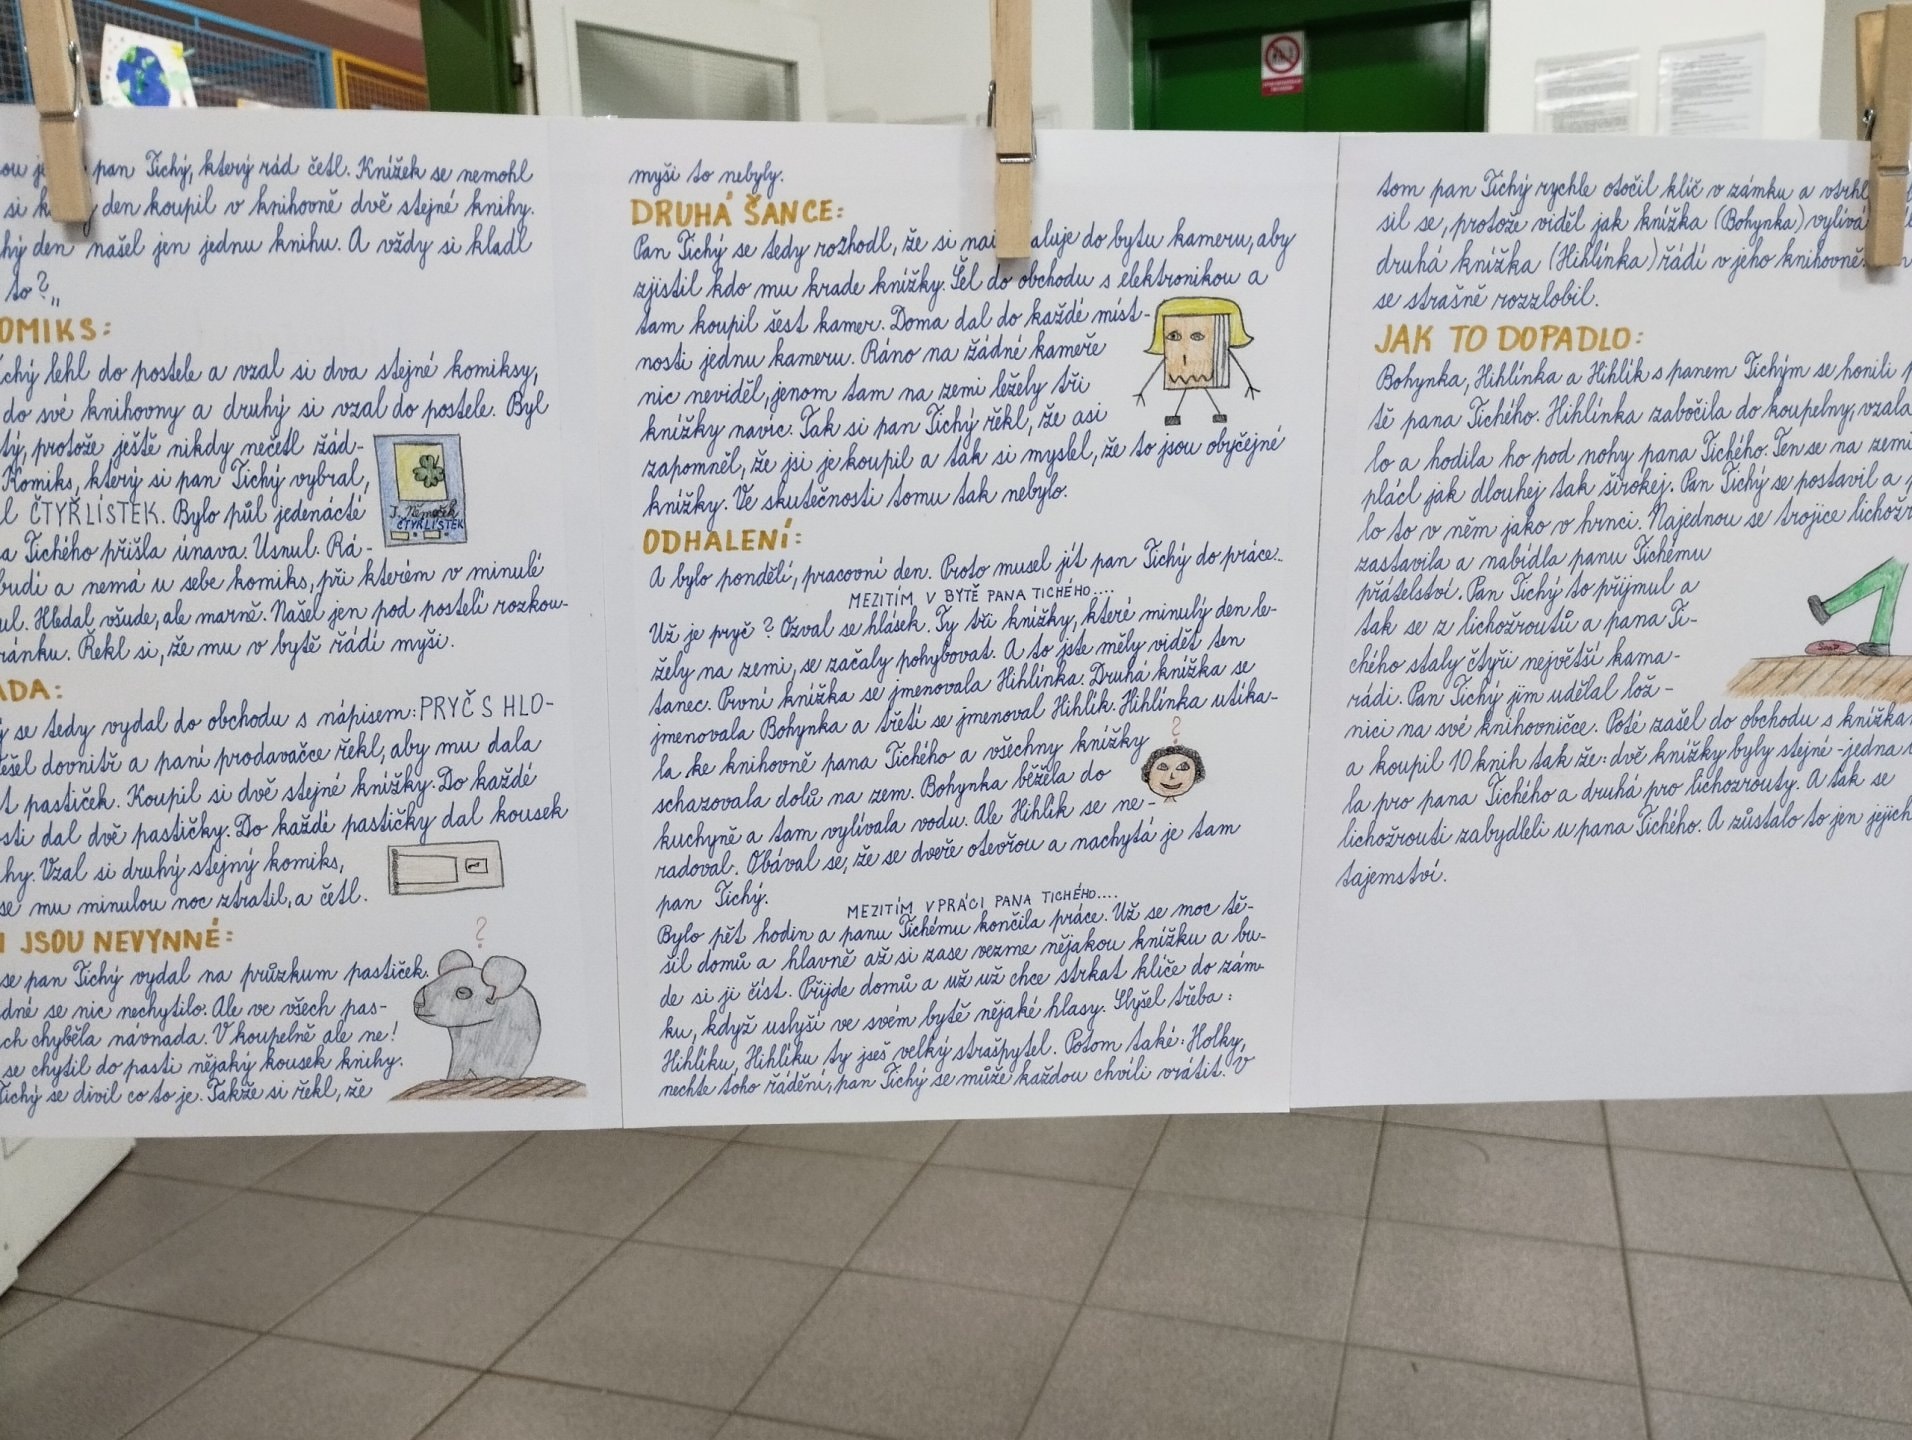 pan Tichý, který rád četl. Knížek se nemohl
si den koupil v knihovně dvě stejné knihy.
den našel jen jednu knihu. A vždy si kladl
to?„
OMIKS:
lehl do postele a vzal si dva stejné komiksy,
do své knihovny a druhý si vzal do postele. Byl
protože ještě nikdy nečetl žád-
Komiks, který si pan Tichý vybral,
ČTYŘLÍSTEK. Bylo půl jedenácté
Tichého přišla únava. Usnul. Rá-
a nemá u sebe komiks, při kterém v minulé
Hledal všude, ale marně. Našel jen pod postelí rozkou-
Řekl si, že mu v bytě řádí myši.
J. Němeček
ČTYŘLÍSTEK
ADA:
se tedy vydal do obchodu s nápisem: PRYČ S HLO-
dovnitř a paní prodavačce řekl, aby mu dala
pastiček. Koupil si dvě stejné knížky. Do každé
dal dvě pastičky. Do každé pastičky dal kousek
Vzal si druhý stejný komiks,
se mu minulou noc ztratil, a četl.
JSOU NEVYNNÉ:
se pan Tichý vydal na průzkum pastiček.
se nic nechytilo. Ale ve všech pas-
chyběla návnada. V koupelně ale ne!
se chytil do pasti nějaký kousek knihy.
Tichý se divil co to je. Takže si řekl, že
?
myši to nebyly.
DRUHÁ ŠANCE:
Pan Tichý se tedy rozhodl, že si aluje do bytu kameru, aby
zjistil kdo mu krade knížky. Šel do obchodu s elektronikou a
tam koupil šest kamer. Doma dal do každé míst-
nosti jednu kameru. Ráno na žádné kameře
nic neviděl, jenom tam na zemi ležely tři
knížky navíc. Tak si pan Tichý řekl, že asi
zapomněl, že jsi je koupil a tak si myslel, že to jsou obyčejné
knížky. Ve skutečnosti tomu tak nebylo.
ODHALENÍ:
A bylo pondělí, pracovní den. Proto musel jít pan Tichý do práce...
MEZITÍM V BYTĚ PANA TICHÉHO....
Už je pryč? Ozval se hlásek. Ty tři knížky, které minulý den le-
žely na zemi, se začaly pohybovat. A to jste měly vidět ten
tanec. První knížka se jmenovala Hihlínka. Druhá knížka se
jmenovala Bohynka a třetí se jmenoval Hihlík. Hihlínka utíka-
la ke knihovně pana Tichého a všechny knížky
schazovala dolů na zem. Bohynka běžela do
kuchyně a tam vylívala vodu. Ale Hihlík se ne-
radoval. Obával se, že se dveře otevřou a nachytá je tam
pan Tichý.
?
MEZITÍM V PRÁCI PANA TICHÉHO....
Bylo pět hodin a panu Tichému končila práce. Už se moc tě-
šil domů a hlavně až si zase vezme nějakou knížku a bu-
de si ji číst. Přijde domů a už už chce strkat klíče do zám-
ku, když uslyší ve svém bytě nějaké hlasy. Slyšel třeba:
Hihlíku, Hihlíku ty jseš velký strašpytel. Potom také: Holky,
nechte toho řádění, pan Tichý se může každou chvíli vrátit. V
tom pan Tichý rychle otočil klíč v zámku a vtrhl
sil se, protože viděl jak knížka (Bohynka) vylívá
druhá knížka (Hihlínka) řádí v jeho knihovně.
se strašně rozzlobil.
JAK TO DOPADLO:
Bohynka, Hihlínka a Hihlík s panem Tichým se honili
tě pana Tichého. Hihlínka zabočila do koupelny, vzala
lo a hodila ho pod nohy pana Tichého. Ten se na zemi
plácl jak dlouhej tak širokej. Pan Tichý se postavil a
lo to v něm jako v hrnci. Najednou se trojice
zastavila a nabídla panu Tichému
přátelství. Pan Tichý to přijmul a
tak se z lichožroutů a pana Ti-
chého staly čtyři největší kama-
rádi. Pan Tichý jim udělal lož-
nici na své knihovničce. Poté zašel do obchodu s
a koupil 10 knih tak že: dvě knížky byly stejné - jedna
la pro pana Tichého a druhá pro lichožrouty. A tak se
lichožrouti zabydleli u pana Tichého. A zůstalo to jen jejich
tajemství.